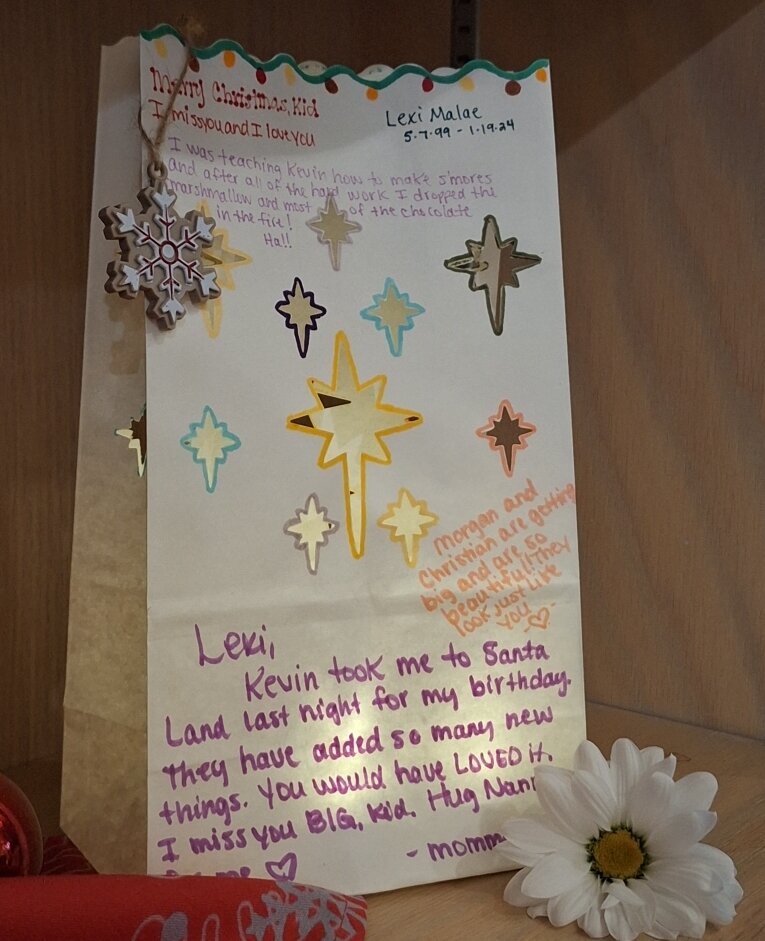 Merry Christmas, Kid
I miss you and I love you
Lexi Malae
5.7.99 - 1.19.24
I was teaching Kevin how to make s'mores
and after all of the hard work I dropped the
marshmallow and most of the chocolate
in the fire!
Ha!!
Morgan and
Christian are getting
big and are so
beautiful! They
look just like
you
Lexi,
Kevin took me to Santa
Land last night for my birthday.
They have added so many new
things. You would have LOVED it.
I miss you BIG, kid. Hug Nan
- momm
me